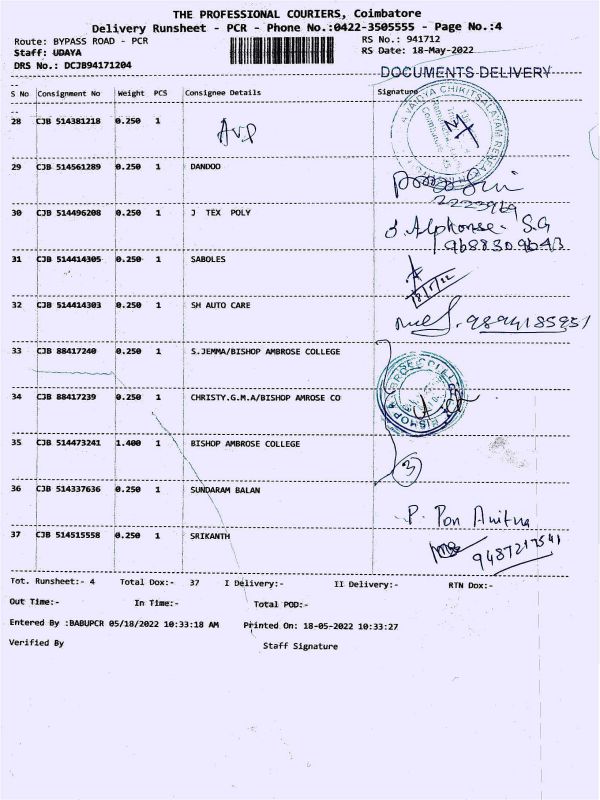 THE PROFESSIONAL COURIERS, Coimbatore
Delivery Runsheet - PCR - Phone No.:0422-3505555 - Page No.:4
Route: BYPASS ROAD - PCR RS No.: 941712
Staff: UDAYA RS Date: 18-May-2022
DRS No.: DCJB94171204
DOCUMENTS DELIVERY
S No Consignment No Weight PCS Consignee Details Signature
28 CJB 514381218 0.250 1 AVP
29 CJB 514561289 0.250 1 DANDOO
2223969
30 CJB 514496208 0.250 1 J TEX POLY
J. Alphonse. S.G
9688309643
31 CJB 514414305 0.250 1 SABOLES
18/5/22
32 CJB 514414303 0.250 1 SH AUTO CARE
9894185951
33 CJB 88417240 0.250 1 S.JEMMA/BISHOP AMBROSE COLLEGE
34 CJB 88417239 0.250 1 CHRISTY.G.M.A/BISHOP AMROSE CO
35 CJB 514473241 1.400 1 BISHOP AMBROSE COLLEGE
3
36 CJB 514337636 0.250 1 SUNDARAM BALAN
P. Pon Anitha
37 CJB 514515558 0.250 1 SRIKANTH
9487217541
Tot. Runsheet:- 4 Total Dox:- 37 I Delivery:- II Delivery:- RTN Dox:-
Out Time:- In Time:- Total POD:-
Entered By :BABUPCR 05/18/2022 10:33:18 AM Printed On: 18-05-2022 10:33:27
Verified By Staff Signature